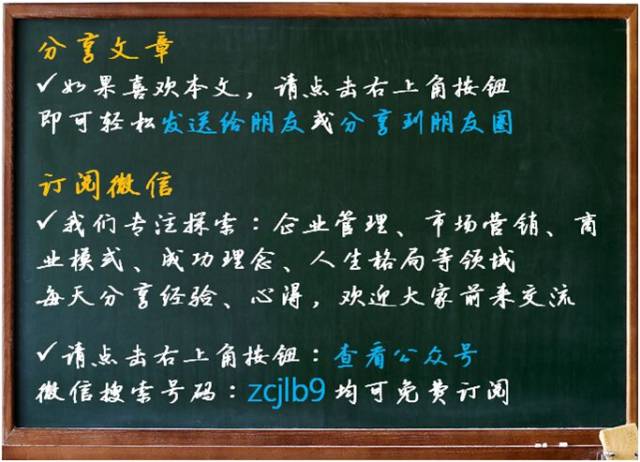 分享文章
✓如果喜欢本文，请点击右上角按钮
即可轻松发送给朋友或分享到朋友圈
订阅微信
✓我们专注探索：企业管理、市场营销、商
业模式、成功理念、人生格局等领域
每天分享经验、心得，欢迎大家前来交流
✓请点击右上角按钮：查看公众号
微信搜索号码：zcjlb9 均可免费订阅